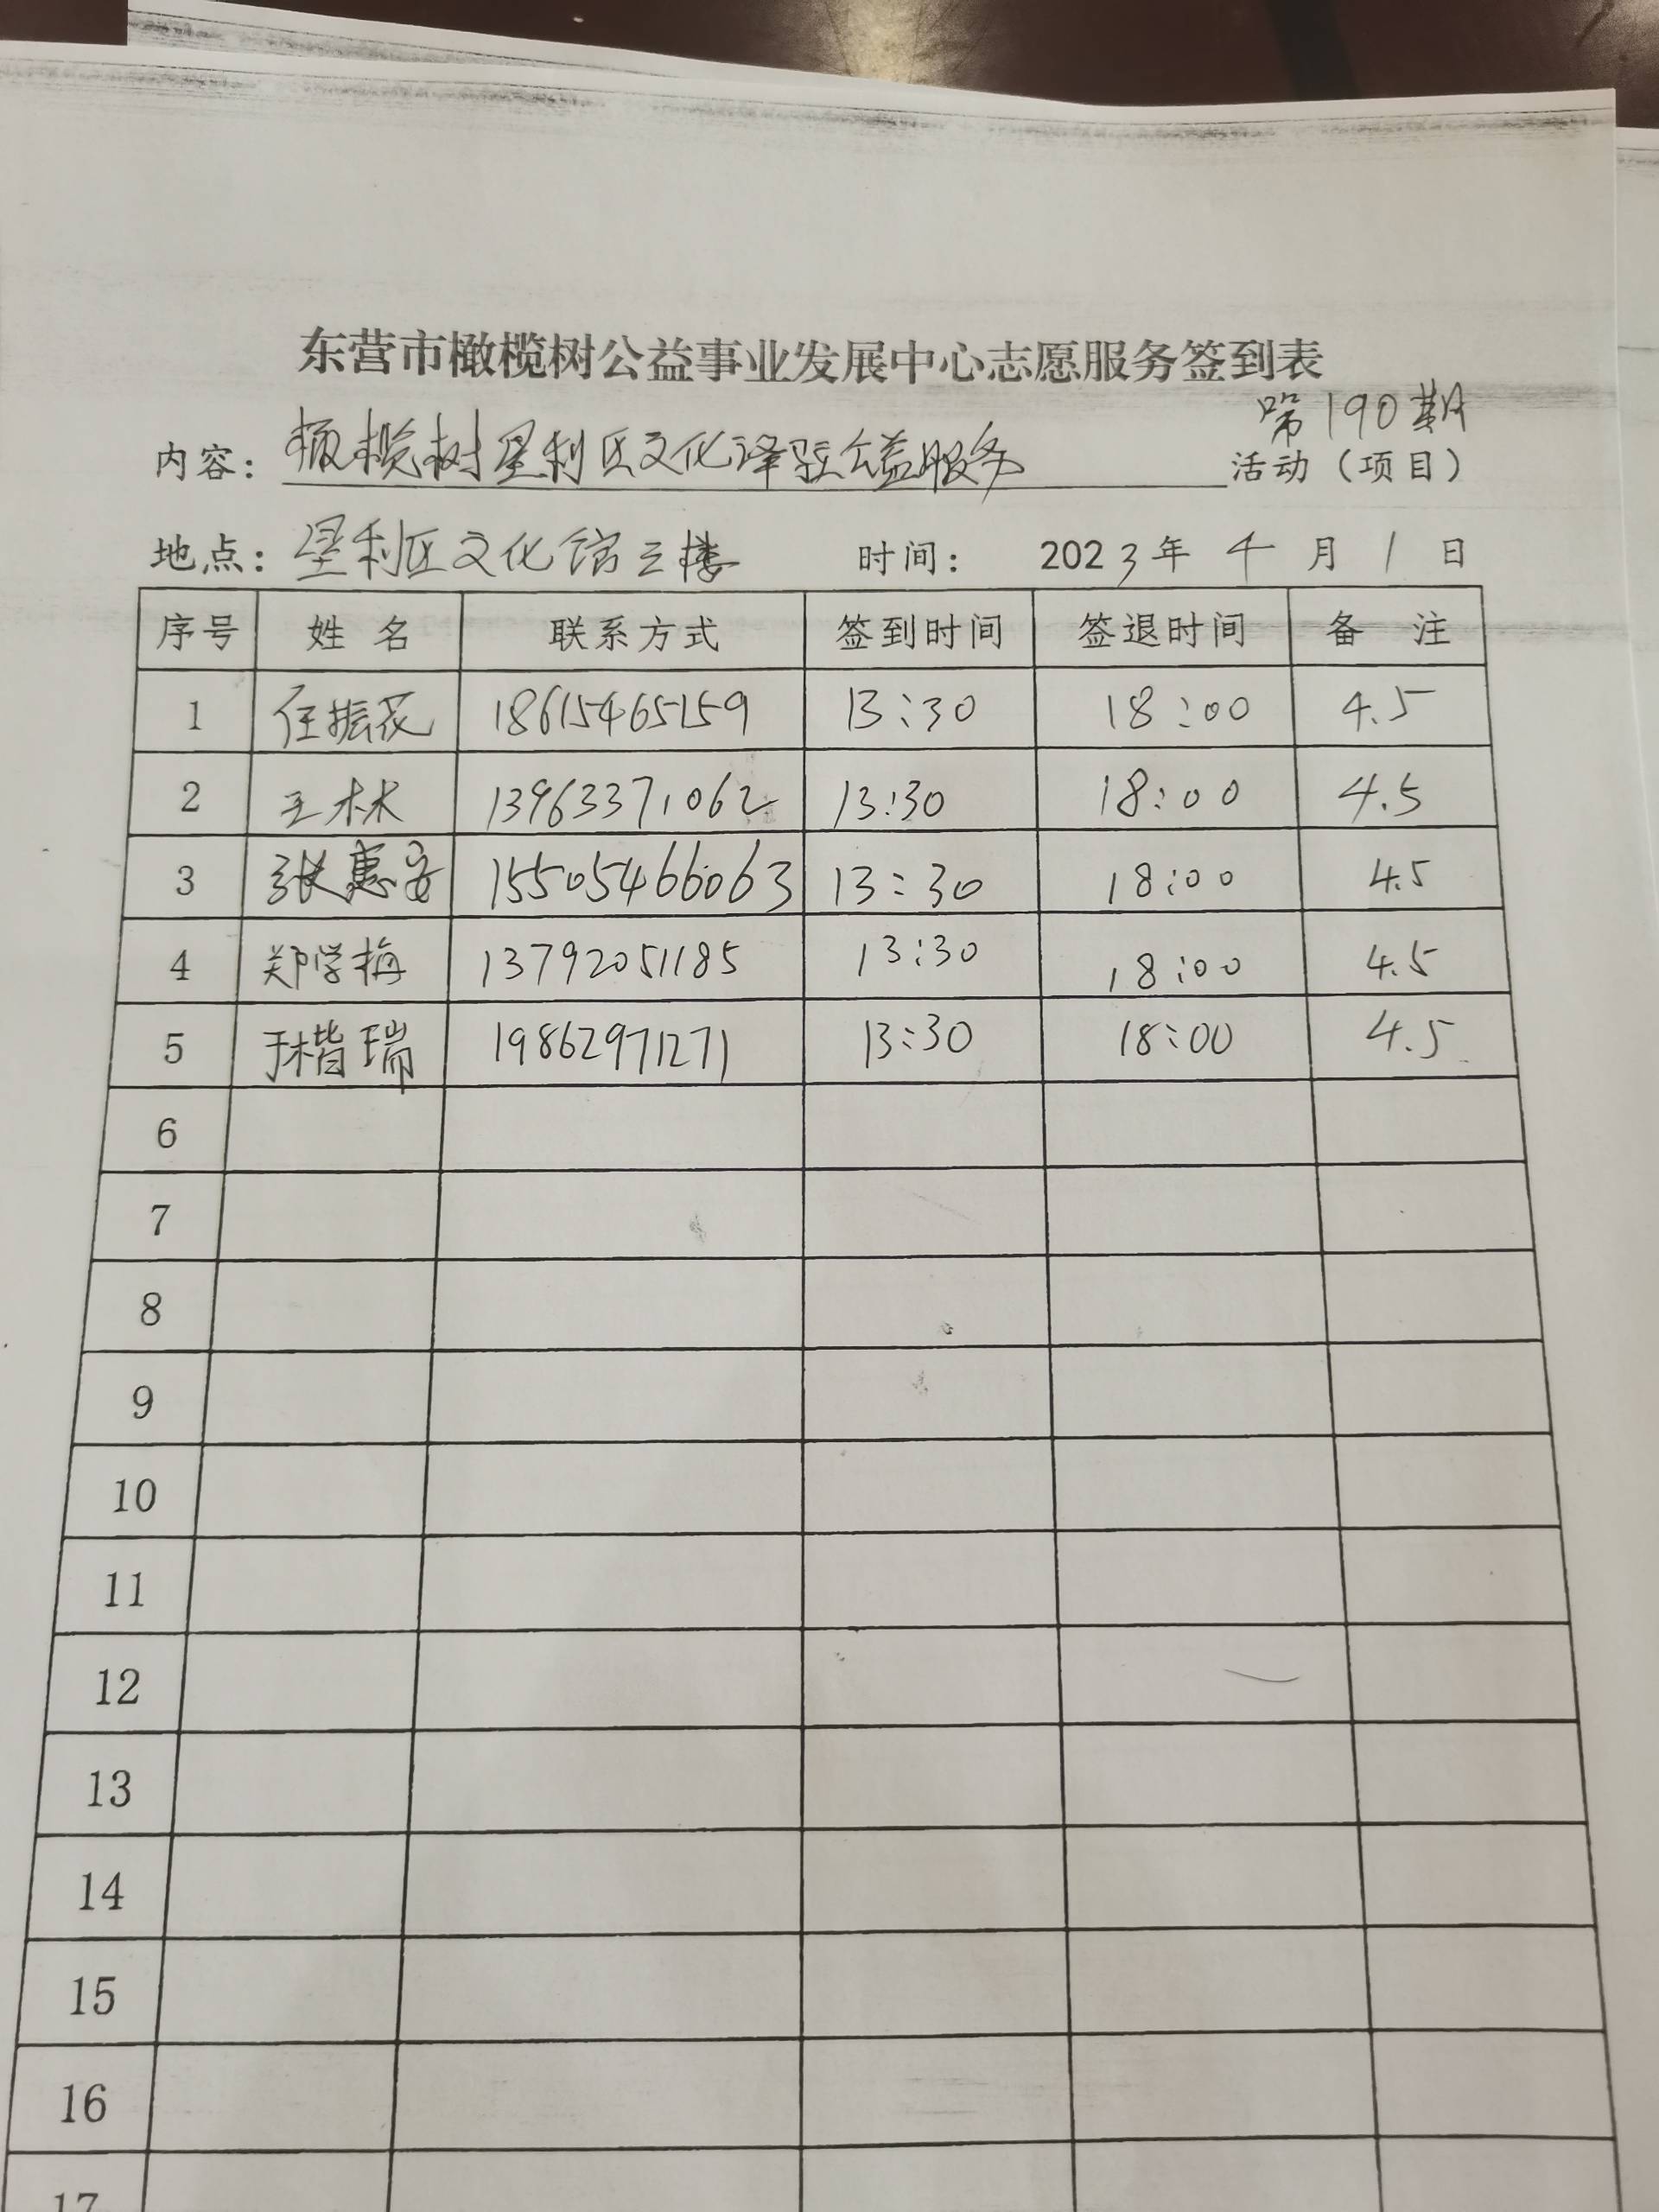 东营市橄榄树公益事业发展中心志愿服务签到表
第190期
内容：橄榄树垦利区文化译驻公益服务 活动（项目）
地点：垦利区文化馆三楼 时间： 2023年 4 月 1 日
序号 姓 名 联系方式 签到时间 签退时间 备 注
1 任振花 18615465159 13:30 18:00 4.5
2 王林 13963371062 13:30 18:00 4.5
3 张惠安 15505466063 13:30 18:00 4.5
4 郑学梅 13792051185 13:30 18:00 4.5
5 于楷瑞 19862971271 13:30 18:00 4.5
6
7
8
9
10
11
12
13
14
15
16
17